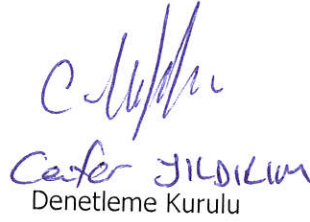 Cafer YILDIRIM
Denetleme Kurulu